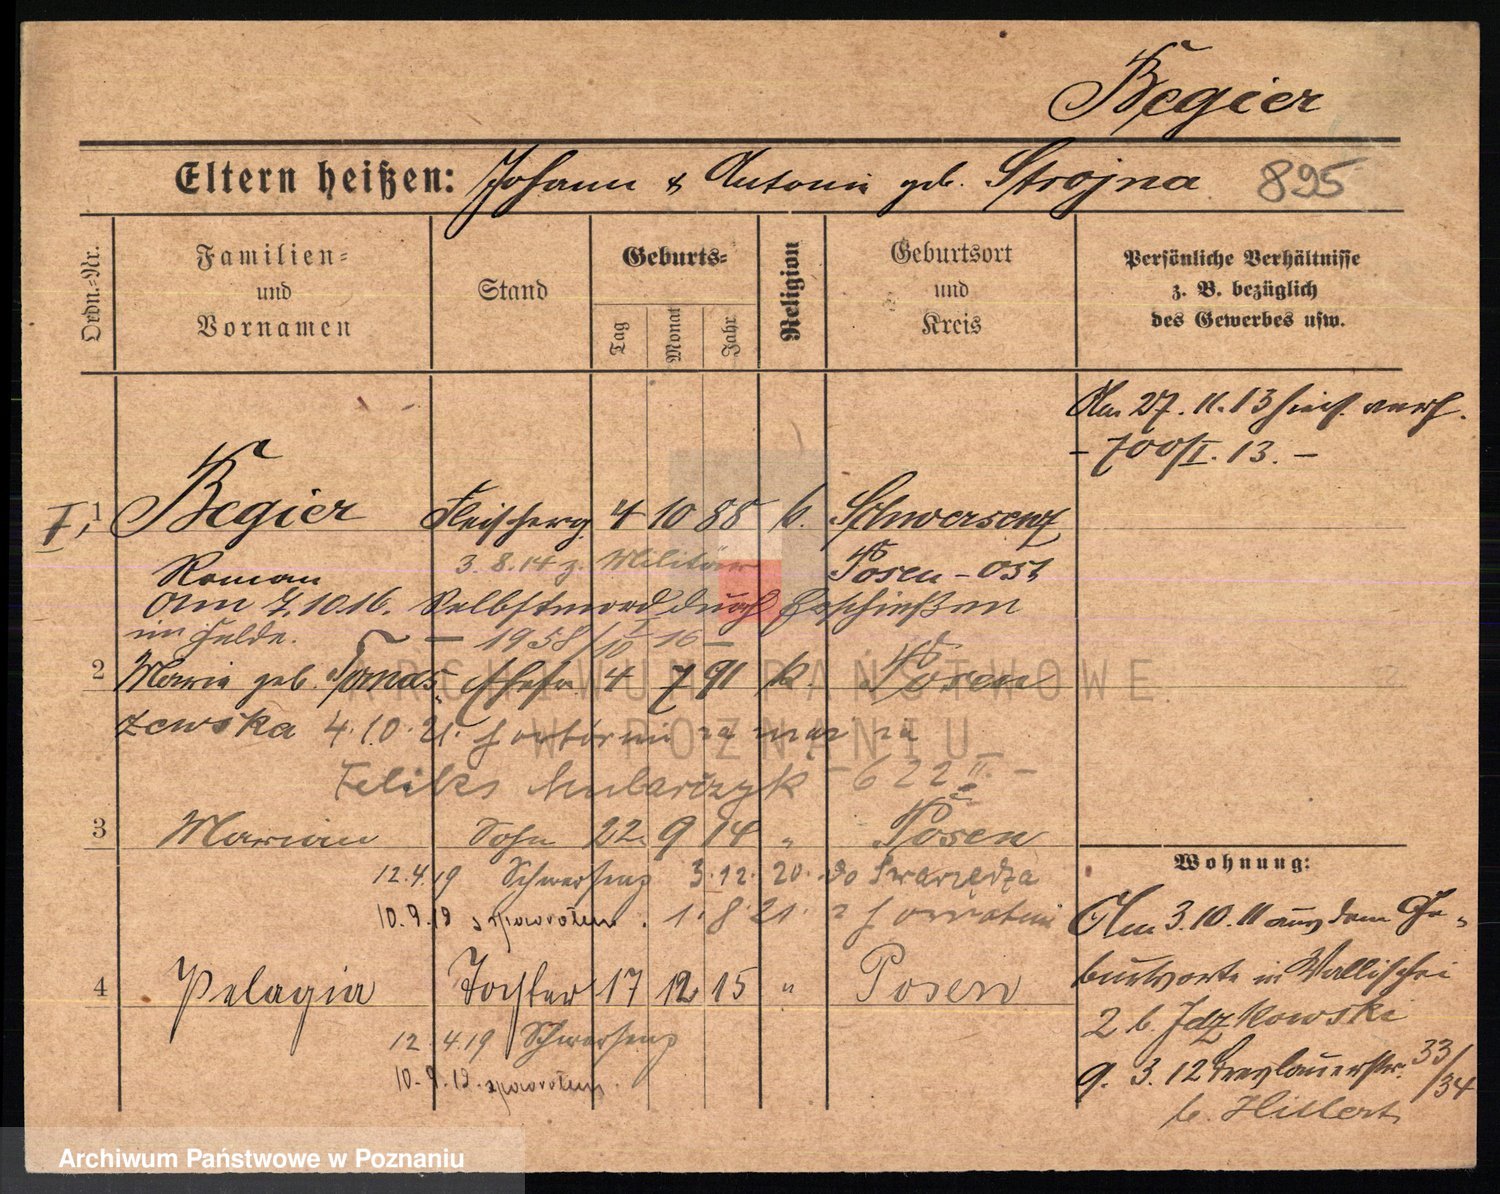 Begier
Eltern heißen: Johann & Antonie geb. Strojna 895
Ordn.-Nr.
Familien- und Vornamen
Stand
Geburts-
Tag
Monat
Jahr
Religion
Geburtsort und Kreis
Persönliche Verhältnisse
z. B. bezüglich
des Gewerbes usw.
Am 27.11.13 hies. verh.
- 700/I. 13. -
I, 1 Begier Fleischerg. 4 10 88 k. Schwersenz
3.8.14 z. Militär
Roman Posen-Ost
Am 7.10.16. Selbstmord durch Erschießen
im Felde. - 1958/10 I 16 -
2 Marie geb. Tomas Ehefr. 4 7 91 k Posen
zewska 4.10.21. powtórnie za mąż za
Feliks Mularczyk - 622 II. -
3 Marian Sohn 22 9 14 " Posen
12.4.19 Schwersenz 3.12.20. do Swarzędza
10.9.19 z powrotem. 1.8.21. z powrotem
4 Pelagia Tochter 17 12 15 " Posen
12.4.19 Schwersenz
10.9.19. zpowrotem.
Wohnung:
Am 3.10.11 aus dem Ge-
burtsorte in Wallischei
2 b. Idzkowski
9. 3. 12 Breslauerstr. 33/34
b. Hillert
ARCHIWUM PAŃSTWOWE
W POZNANIU
Archiwum Państwowe w Poznaniu